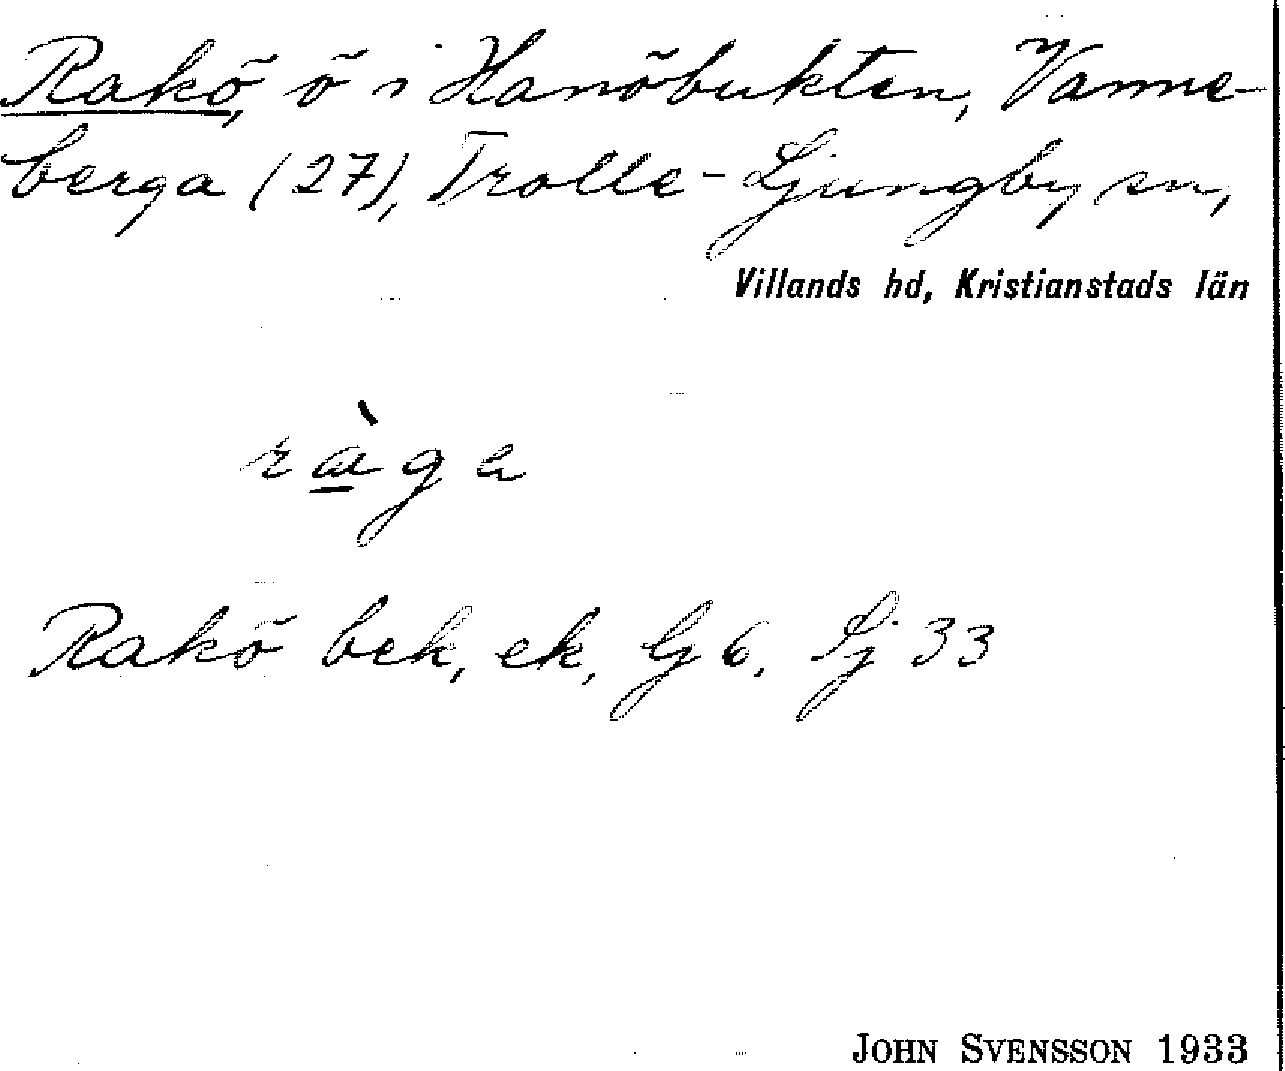 Rakö, ö i Hanöbukten, Vanne-
berga (27), Trolle-Ljungby sn,
Villands hd, Kristianstads län
Rakö bek, ek, Gj 6, Sj 33
JOHN SVENSSON 1933